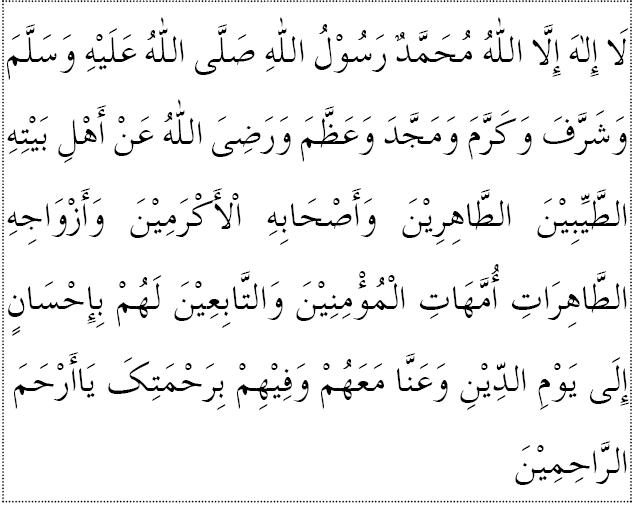 لَا إِلٰهَ إِلَّا اللّٰهُ مُحَمَّدٌ رَسُوْلُ اللّٰهِ صَلَّى اللّٰهُ عَلَيْهِ وَسَلَّمَ
وَشَرَّفَ وَكَرَّمَ وَمَجَّدَ وَعَظَّمَ وَرَضِىَ اللّٰهُ عَنْ أَهْلِ بَيْتِهِ
الطَّيِّبِيْنَ الطَّاهِرِيْنَ وَأَصْحَابِهِ الْأَكْرَمِيْنَ وَأَزْوَاجِهِ
الطَّاهِرَاتِ أُمَّهَاتِ الْمُؤْمِنِيْنَ وَالتَّابِعِيْنَ لَهُمْ بِإِحْسَانٍ
إِلَى يَوْمِ الدِّيْنِ وَعَنَّا مَعَهُمْ وَفِيْهِمْ بِرَحْمَتِکَ يَاأَرْحَمَ
الرَّاحِمِيْنَ